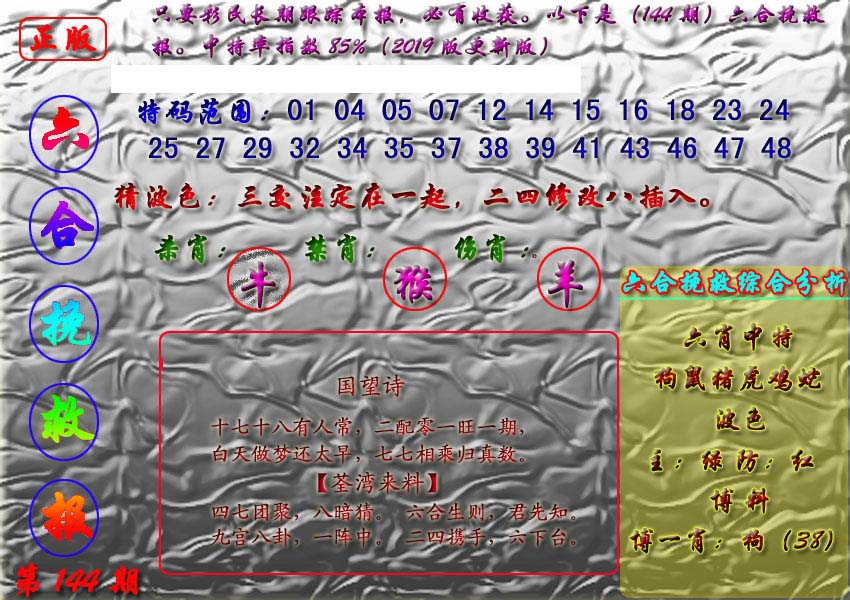 正版
只要彩民长期跟踪本报，必有收获。以下是（144期）六合挽救
报。中特率指数85%（2019版更新版）
六合挽救报
第144期
特码范围：01 04 05 07 12 14 15 16 18 23 24
25 27 29 32 34 35 37 38 39 41 43 46 47 48
猜波色：三交注定在一起，二四修改八插入。
杀肖：牛 禁肖：猴 伤肖：羊
国望诗
十七十八有人常，二配零一旺一期，
白天做梦还太早，七七相乘归真数。
【荃湾来料】
四七团聚，八暗猜。 六合生则，君先知。
九宫八卦，一阵中。 二四携手，六下台。
六合挽救综合分析
六肖中特
狗鼠猪虎鸡蛇
波色
主：绿 防：红
博料
博一肖：狗（38）